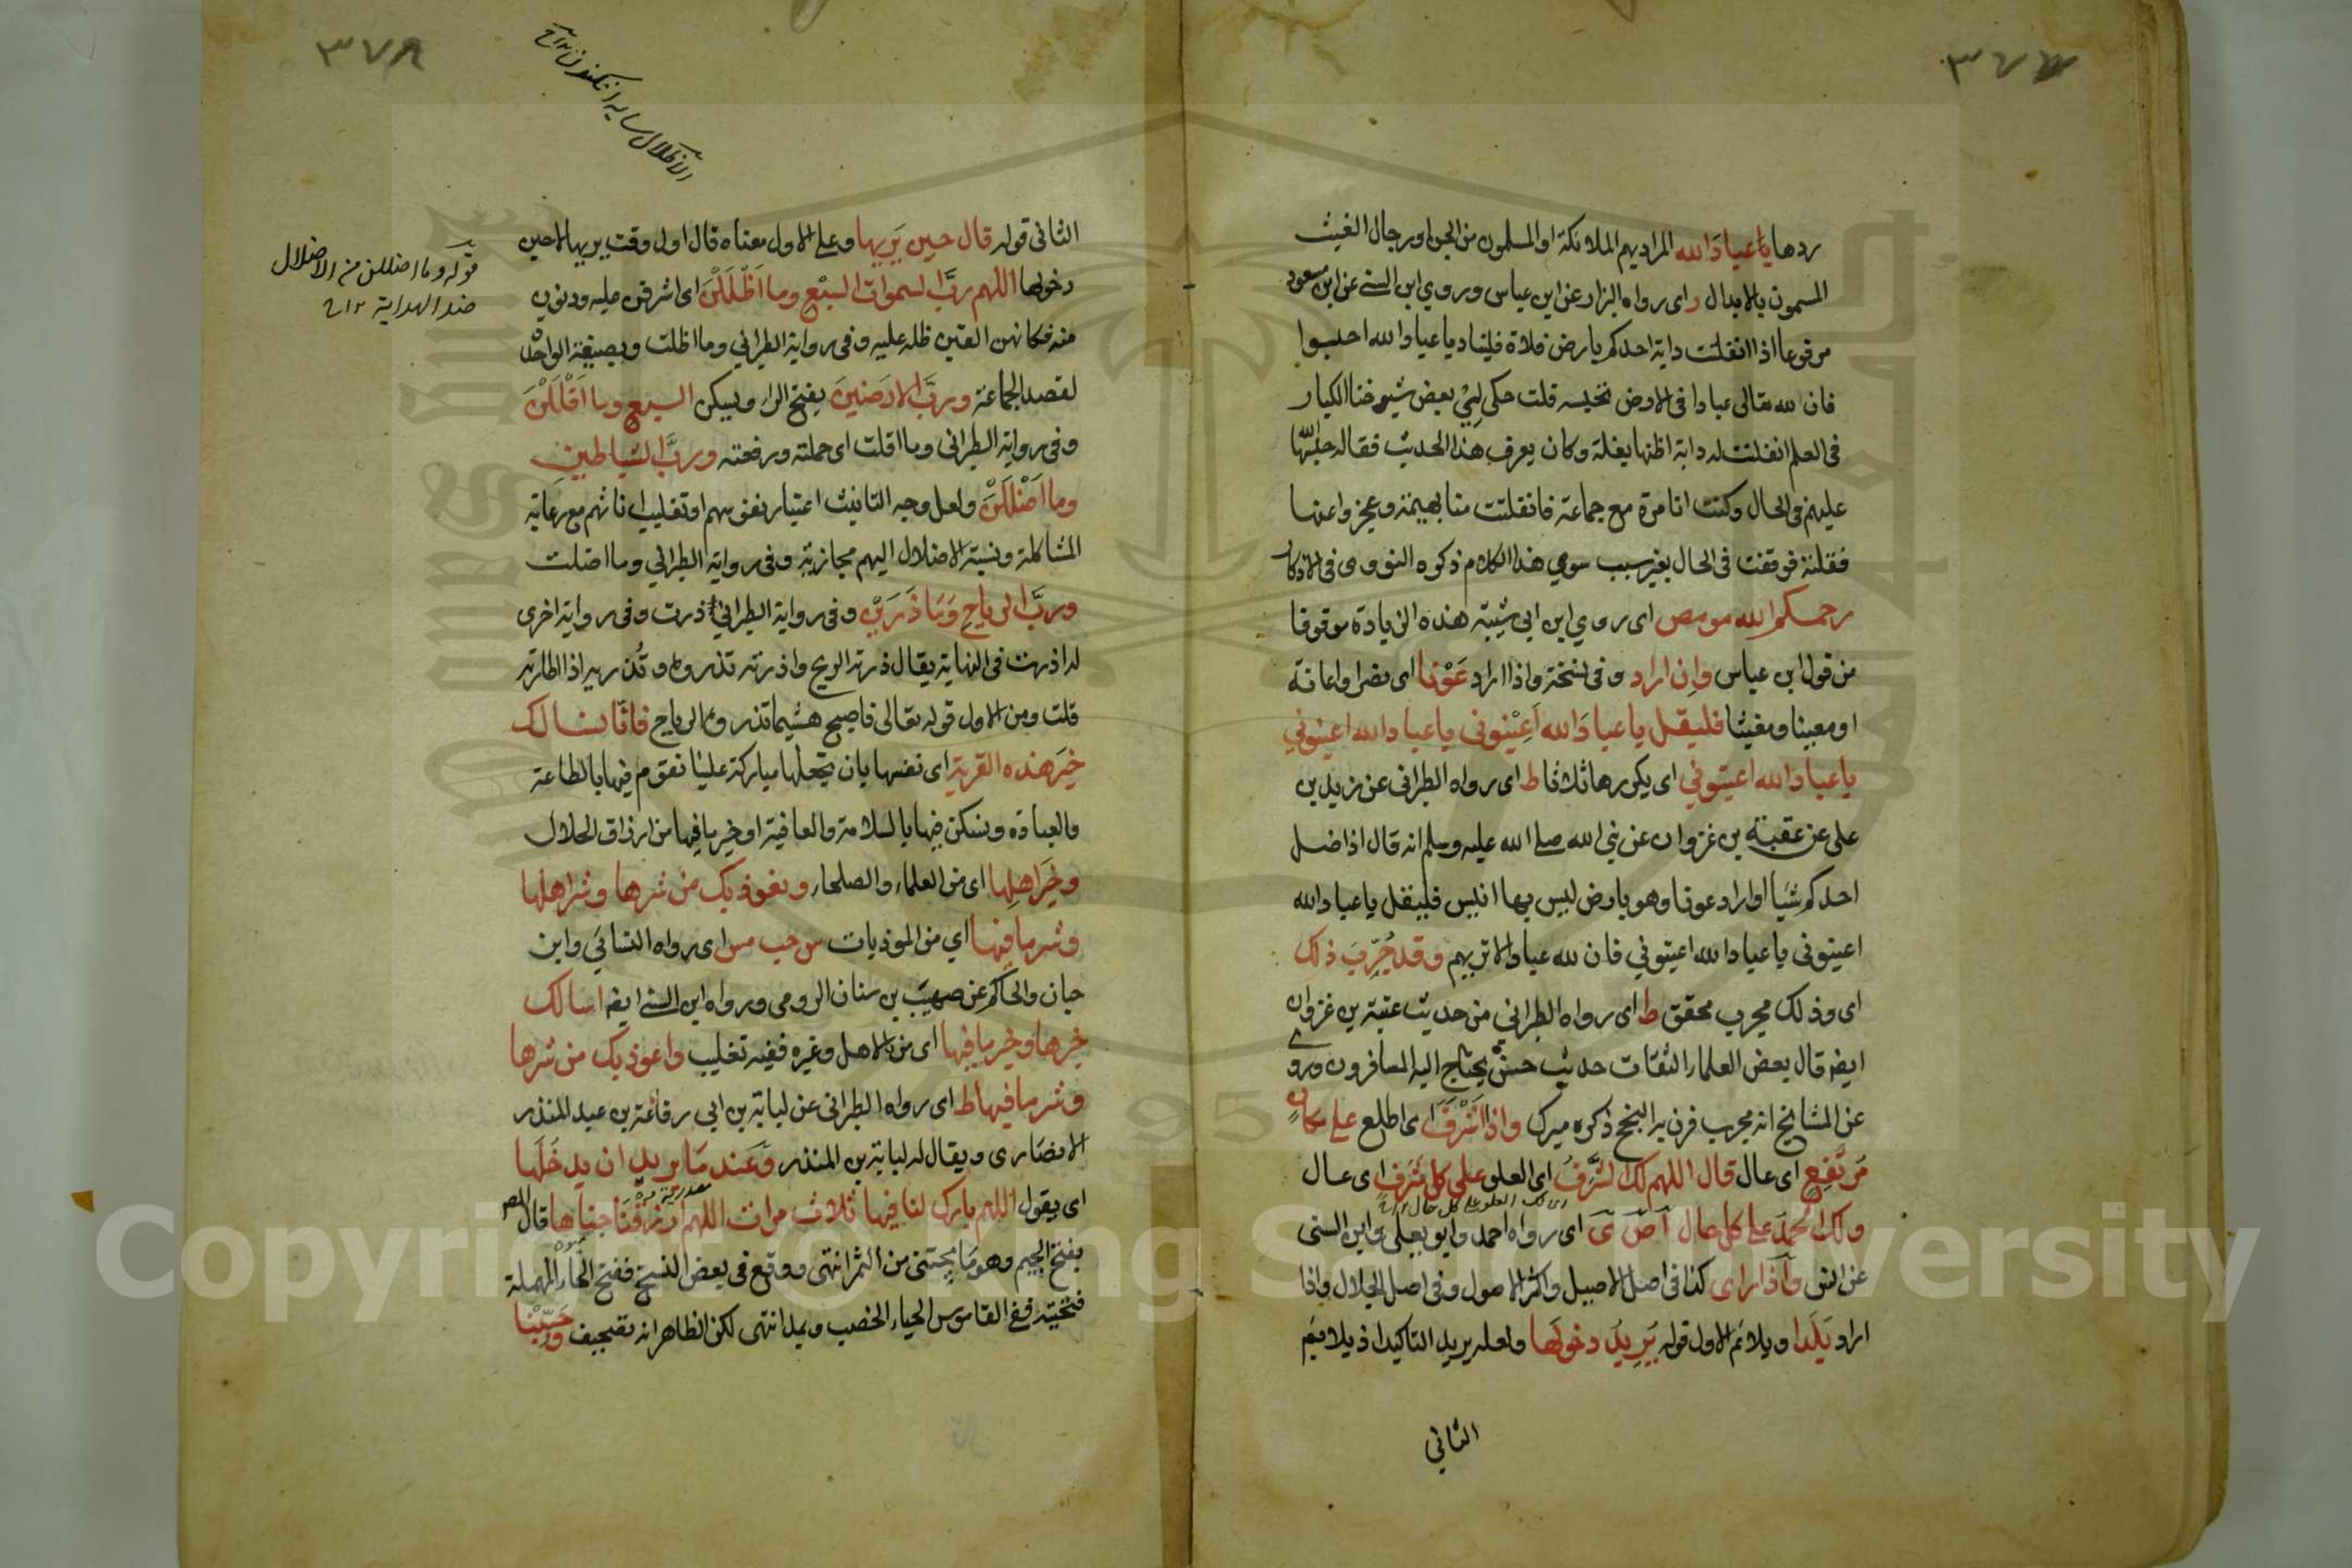 ٣٧٧
ردها يا عباد الله المراد بهم الملائكة او المسلمون من الجن او رجال الغيب
المسمون بالابدال ر اى رواه البزار عن ابن عباس وروي ابن السنى عن ابن مسعود
مرفوعا اذا انفلتت دابة احدكم بارض فلاة فليناد يا عباد الله احبسوا
فان لله تعالى عبادا فى الارض تحبسه قلت حكى لى بعض شيوخنا الكبار
فى العلم انفلتت له دابة اظنها بغلة وكان يعرف هذا الحديث فقاله فحبسها
عليهم فى الحال وكنت انا مرة مع جماعة فانفلتت منا بهيمة وعجزوا عنها
فقلته فوقفت فى الحال بغير سبب سوى هذا الكلام ذكره النووى فى الاذكار
رحمكم الله مو مص اى روي ابن ابى شيبة هذه الزيادة موقوفا
من قول ابن عباس وان اراد وفى نسخة واذا اراد عَوْنا اى نصرا واعانة
او معينا ومغيثا فليقل يا عباد الله اعينونى يا عباد الله اعينوني
يا عباد الله اعينوني اى يكررها ثلاثا ط اى رواه الطبرانى عن زيد بن
على عن عقبة بن غزوان عن نبي الله صلى الله عليه وسلم انه قال اذا ضل
احدكم شيأ او اراد عونا وهو بارض ليس بها انيس فليقل يا عباد الله
اعينونى يا عباد الله اعينوني فان لله عبادا لا تريهم وقد جُرِّبَ ذلك
اى وذلك مجرب محقق ط اى رواه الطبراني من حديث عتبة بن غزوان
ايضه قال بعض العلماء الثقات حديث حسن يحتاج اليه المسافرون وروى
عن المشايخ انه مجرب قرن به النجح ذكره ميرك واذا اشرف اى اطلع على مكان
مرتفع اى عال قال اللهم لك الشرف اى العلو على كل شرف اى عال
اى لك العلو على كل حال ١٢
ولك الحمد على كل حال ا ص ى اى رواه احمد وابو يعلى وابن السنى
عن انس واذا راى كذا فى اصل الاصيل واكثر الاصول وفى اصل الجلال واذا
اراد بلدا ويلائم الاول قوله يريد دخولها ولعله يريد التاكيد اذ يلايم
الثاني
٣٧٨
الاظلال سايه افكندن ١٢
قوله وما اضللن من الاضلال
ضد الهداية ١٢
الثانى قوله قال حين يريها وعلى الاول معناه قال اول وقت يريها لا حين
دخولها اللهم رب السموات السبع وما اظللن اى اشرفن عليه ودنون
منه فكانهن القين ظله عليه وفى رواية الطبراني وما اظلت وبصيغة الواحدة
لقصد الجماعة ورب الارضين بفتح الراء ويسكن السبع وما اقللن
وفى رواية الطبرانى وما اقلت اى حملته ورفعته ورب الشياطين
وما اضللن ولعل وجه التانيث اعتبار نفوسهم او تغليب اناثهم مع رعاية
المشاكلة ونسبة الاضلال اليهم مجازية وفى رواية الطبراني وما اضلت
ورب الرياح وما ذرين وفى رواية الطبراني ذرت وفى رواية اخرى
له اذرت فى النهاية يقال ذرته الريح واذرته تذروه وتُذريه اذا اطارته
قلت ومن الاول قوله تعالى فاصبح هشيما تذروه الرياح فانا نسالك
خير هذه القرية اى نفسها بان تجعلها مباركة علينا نقوم فيها بالطاعة
والعبادة ونسكن فيها بالسلامة والعافية او خير ما فيها من ارزاق الحلال
وخير اهلها اى من العلماء والصلحاء ونعوذ بك من شرها وشر اهلها
وشر ما فيها اي من الموذيات س حب مس اى رواه النسائي وابن
حبان والحاكم عن صهيب بن سنان الرومى ورواه ابن السنى ايضه اسالك
خيرها وخير ما فيها اى من الاهل وغيره ففيه تغليب واعوذ بك من شرها
وشر ما فيها ط اى رواه الطبرانى عن لبابة بن ابى رفاعة بن عبد المنذر
الانصارى ويقال له لبابة بن المنذر وعند ما يريد ان يدخلها
اى يقول اللهم بارك لنا فيها ثلاث مرات اللهم ارزقنا جناها قال المص
بفتح الجيم وهو ما يجتنى من الثمر انتهى ووقع فى بعض النسخ بفتح الحاء المهملة
فتحتية ففى القاموس الحياء الخصب ويمد انتهى لكن الظاهر انه تصحيف وحببنا